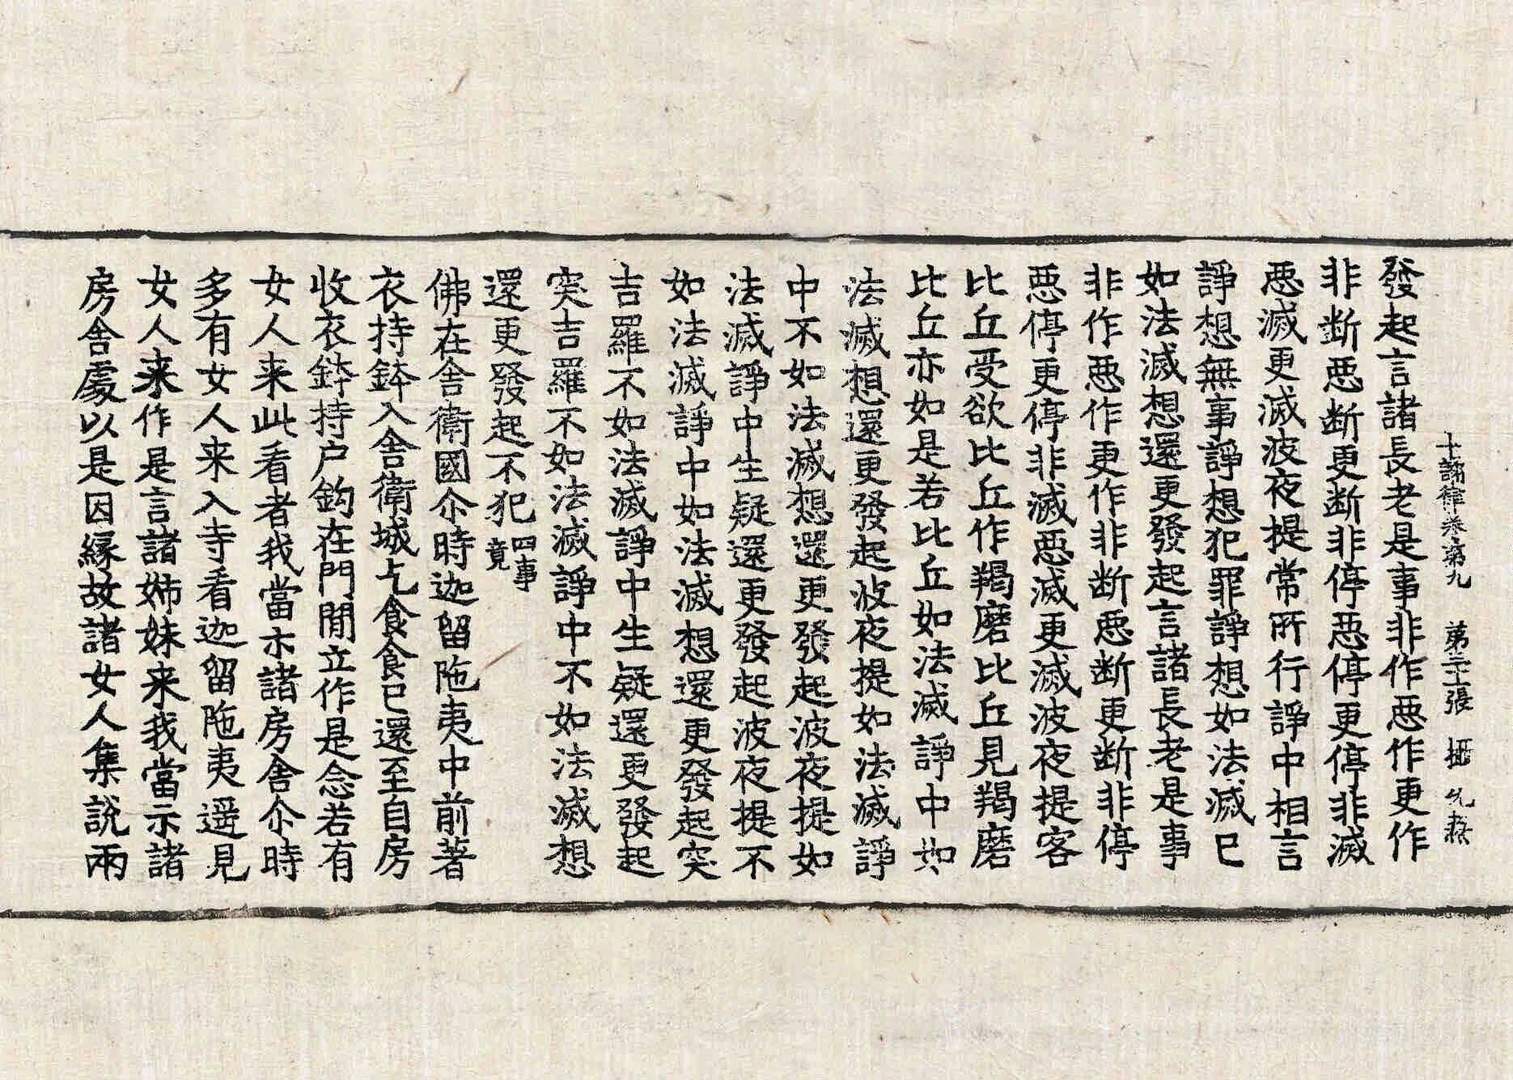 十誦律卷第九 第三十張 攝
發起言諸長老是事非作惡作更作
非斷惡斷更斷非停惡停更停非滅
惡滅更滅波夜提常所行諍中相言
諍想無事諍想犯罪諍想如法滅已
如法滅想還更發起言諸長老是事
非作惡作更作非斷惡斷更斷非停
惡停更停非滅惡滅更滅波夜提客
比丘受欲比丘作羯磨比丘見羯磨
比丘亦如是若比丘如法滅諍中如
法滅想還更發起波夜提如法滅諍
中不如法滅想還更發起波夜提如
法滅諍中生疑還更發起波夜提不
如法滅諍中如法滅想還更發起突
吉羅不如法滅諍中生疑還更發起
突吉羅不如法滅諍中不如法滅想
還更發起不犯四事竟
佛在舍衛國尒時迦留陁夷中前著
衣持鉢入舍衛城乞食食已還至自房
收衣鉢持户鉤在門閒立作是念若有
女人来此看者我當示諸房舍尒時
多有女人来入寺看迦留陁夷遥見
女人来作是言諸姊妹来我當示諸
房舍處以是因縁故諸女人集說兩